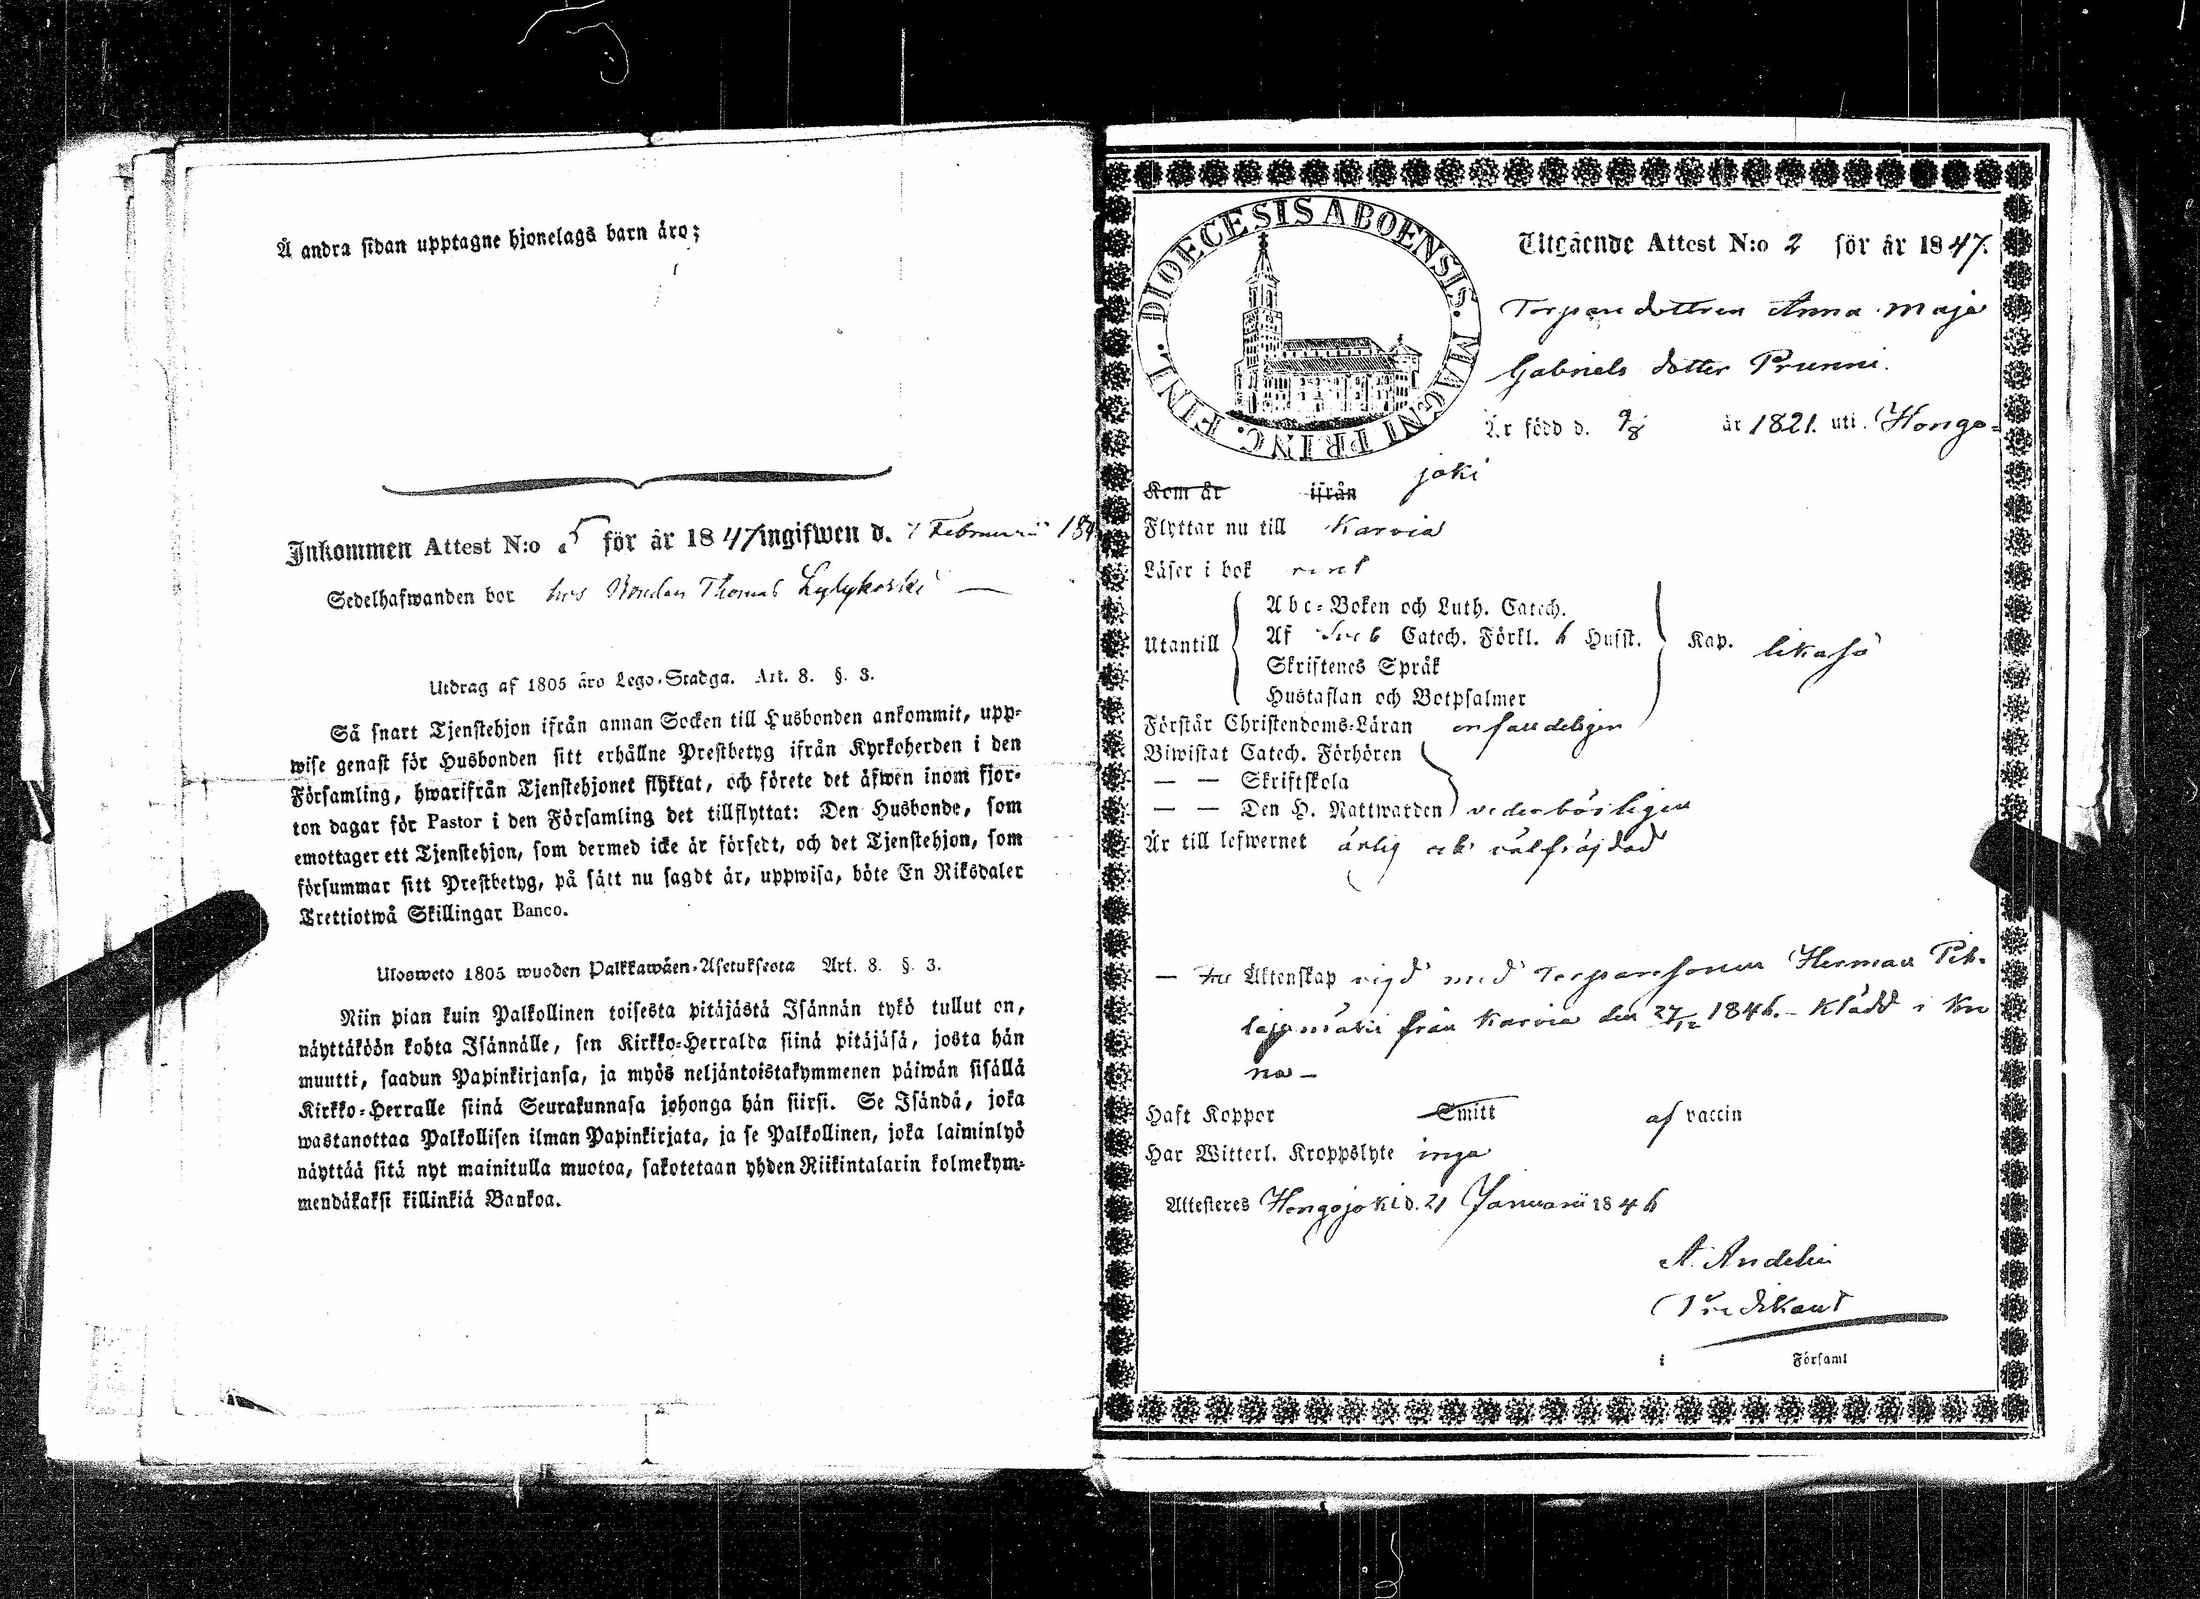 Å andra sidan upptagne hjonelags barn äro;
Inkommen Attest N:o 5 för år 1847 ingifwen d. 7 Februarii 184
Sedelhafwanden bor hos Bonden Thomas Lylykoski —
Utdrag af 1805 åro Lego-Stadga. Art. 8. §. 3.
Så snart Tjenstehjon ifrån annan Socken till Husbonden ankommit, upp-
wise genast för Husbonden sitt erhållne Prestbetyg ifrån Kyrkoherden i den
Församling, hwarifrån Tjenstehjonet flyttat, och förete det äfwen inom fjor-
ton dagar för Pastor i den Församling det tillflyttat: Den Husbonde, som
emottager ett Tjenstehjon, som dermed icke är försedt, och det Tjenstehjon, som
försummar sitt Prestbetyg, på sätt nu sagdt är, uppwisa, böte En Riksdaler
Trettiotwå Skillingar Banco.
Ulosweto 1805 wuoden Palkkawäen-Asetuksesta Art. 8. §. 3.
Niin pian kuin Palkollinen toisesta pitäjästä Isännän tykö tullut on,
näyttäköön kohta Isännälle, sen Kirkko-Herralda siinä pitäjäsä, josta hän
muutti, saadun Papinkirjansa, ja myös neljäntoistakymmenen päiwän sisällä
Kirkko-Herralle siinä Seurakunnasa johonga hän siirsi. Se Isändä, joka
wastanottaa Palkollisen ilman Papinkirjata, ja se Palkollinen, joka laiminlyö
näyttää sitä nyt mainitulla muotoa, sakotetaan yhden Riikintalarin kolmekym-
mendäkaksi killinkiä Bankoa.
DIOECESIS ABOENSIS. MAGNI PRINC. FINL.
Utgående Attest N:o 2 för år 1847.
Torparedottren Anna Maja
Gabriels dotter Prunni.
Är född d. 9/8 år 1821. uti Hongo-
joki
Kom år ifrån
Flyttar nu till Karvia
Läser i bok rent
Utantill
Abc-Boken och Luth. Catech.
Af Sveb Catech. Förkl. 6 Hufst.
Skriftenes Språk
Hustaflan och Botpsalmer
Kap. likaså
Förstår Christendoms-Läran
Biwistat Catech. Förhören
— — Skriftskola
— — Den H. Nattwarden vederbörligen
Är till lefwernet ärlig och välfräjdad
— Till Äktenskap vigd med Torparesonen Herman Pik-
lajamäki från Karvia den 27/12 1846. – Klädd i Kro
na –
Haft Koppor Smitt af vaccin
Har Witterl. Kroppslyte inga
Attesteres Hongojoki d. 21 Januarii 1846
A. Andelin
Predikant
i Församl